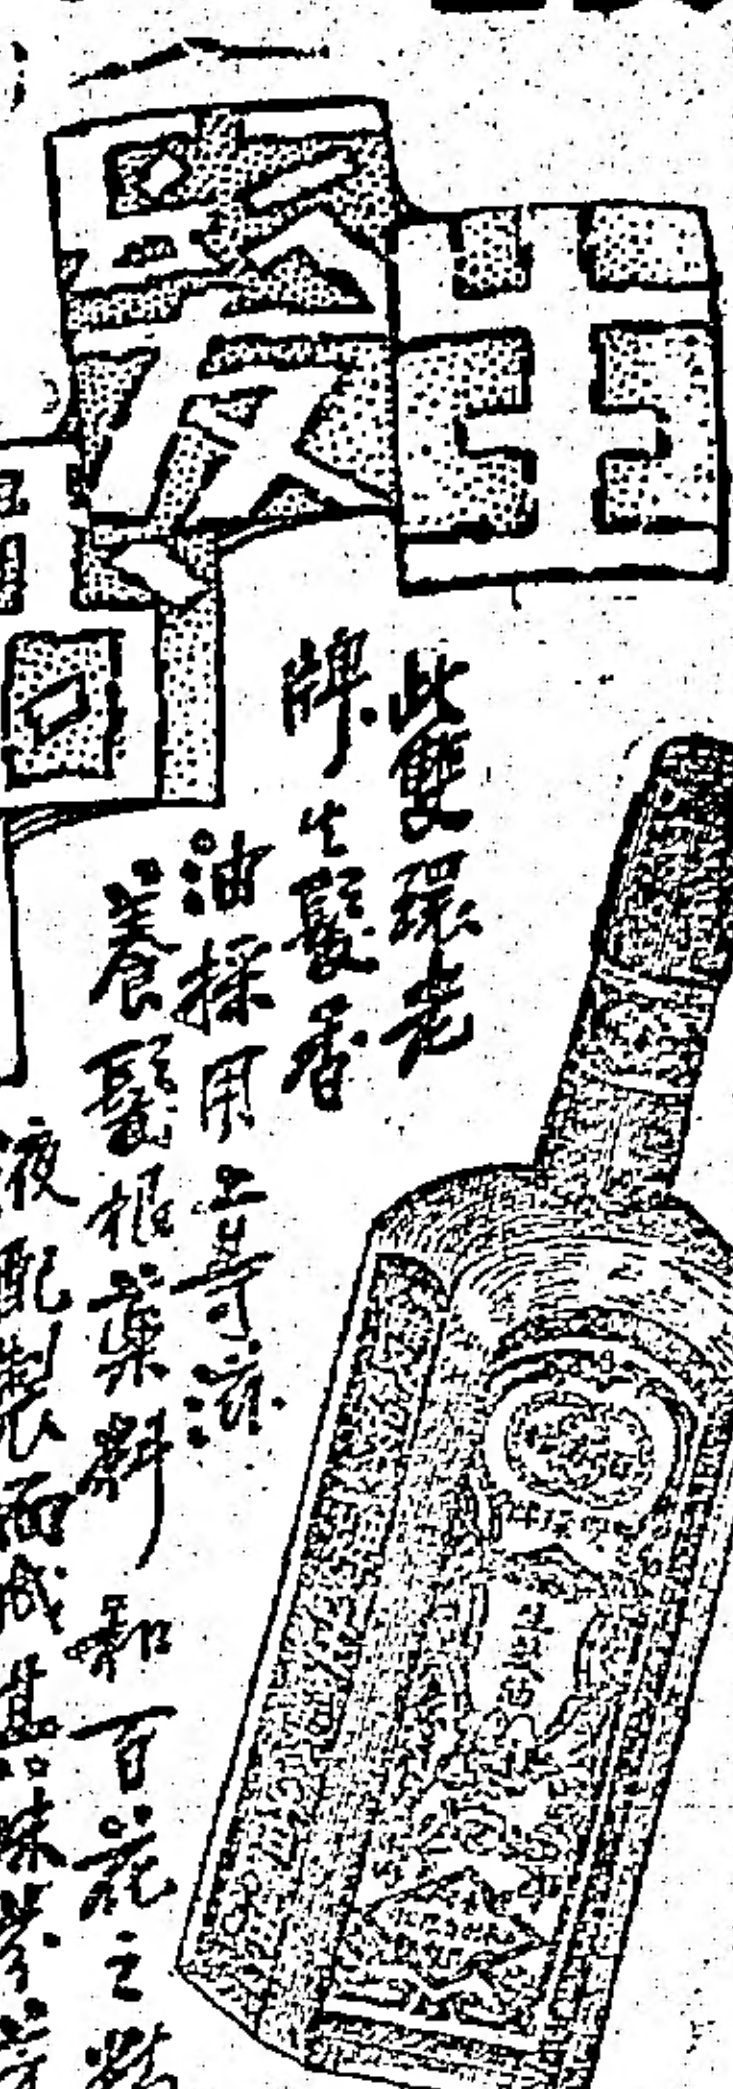 生髮
此雙環老
牌生髮香
油採用上等滋
養髮根薬料和百花之精
液配製而成其味芬